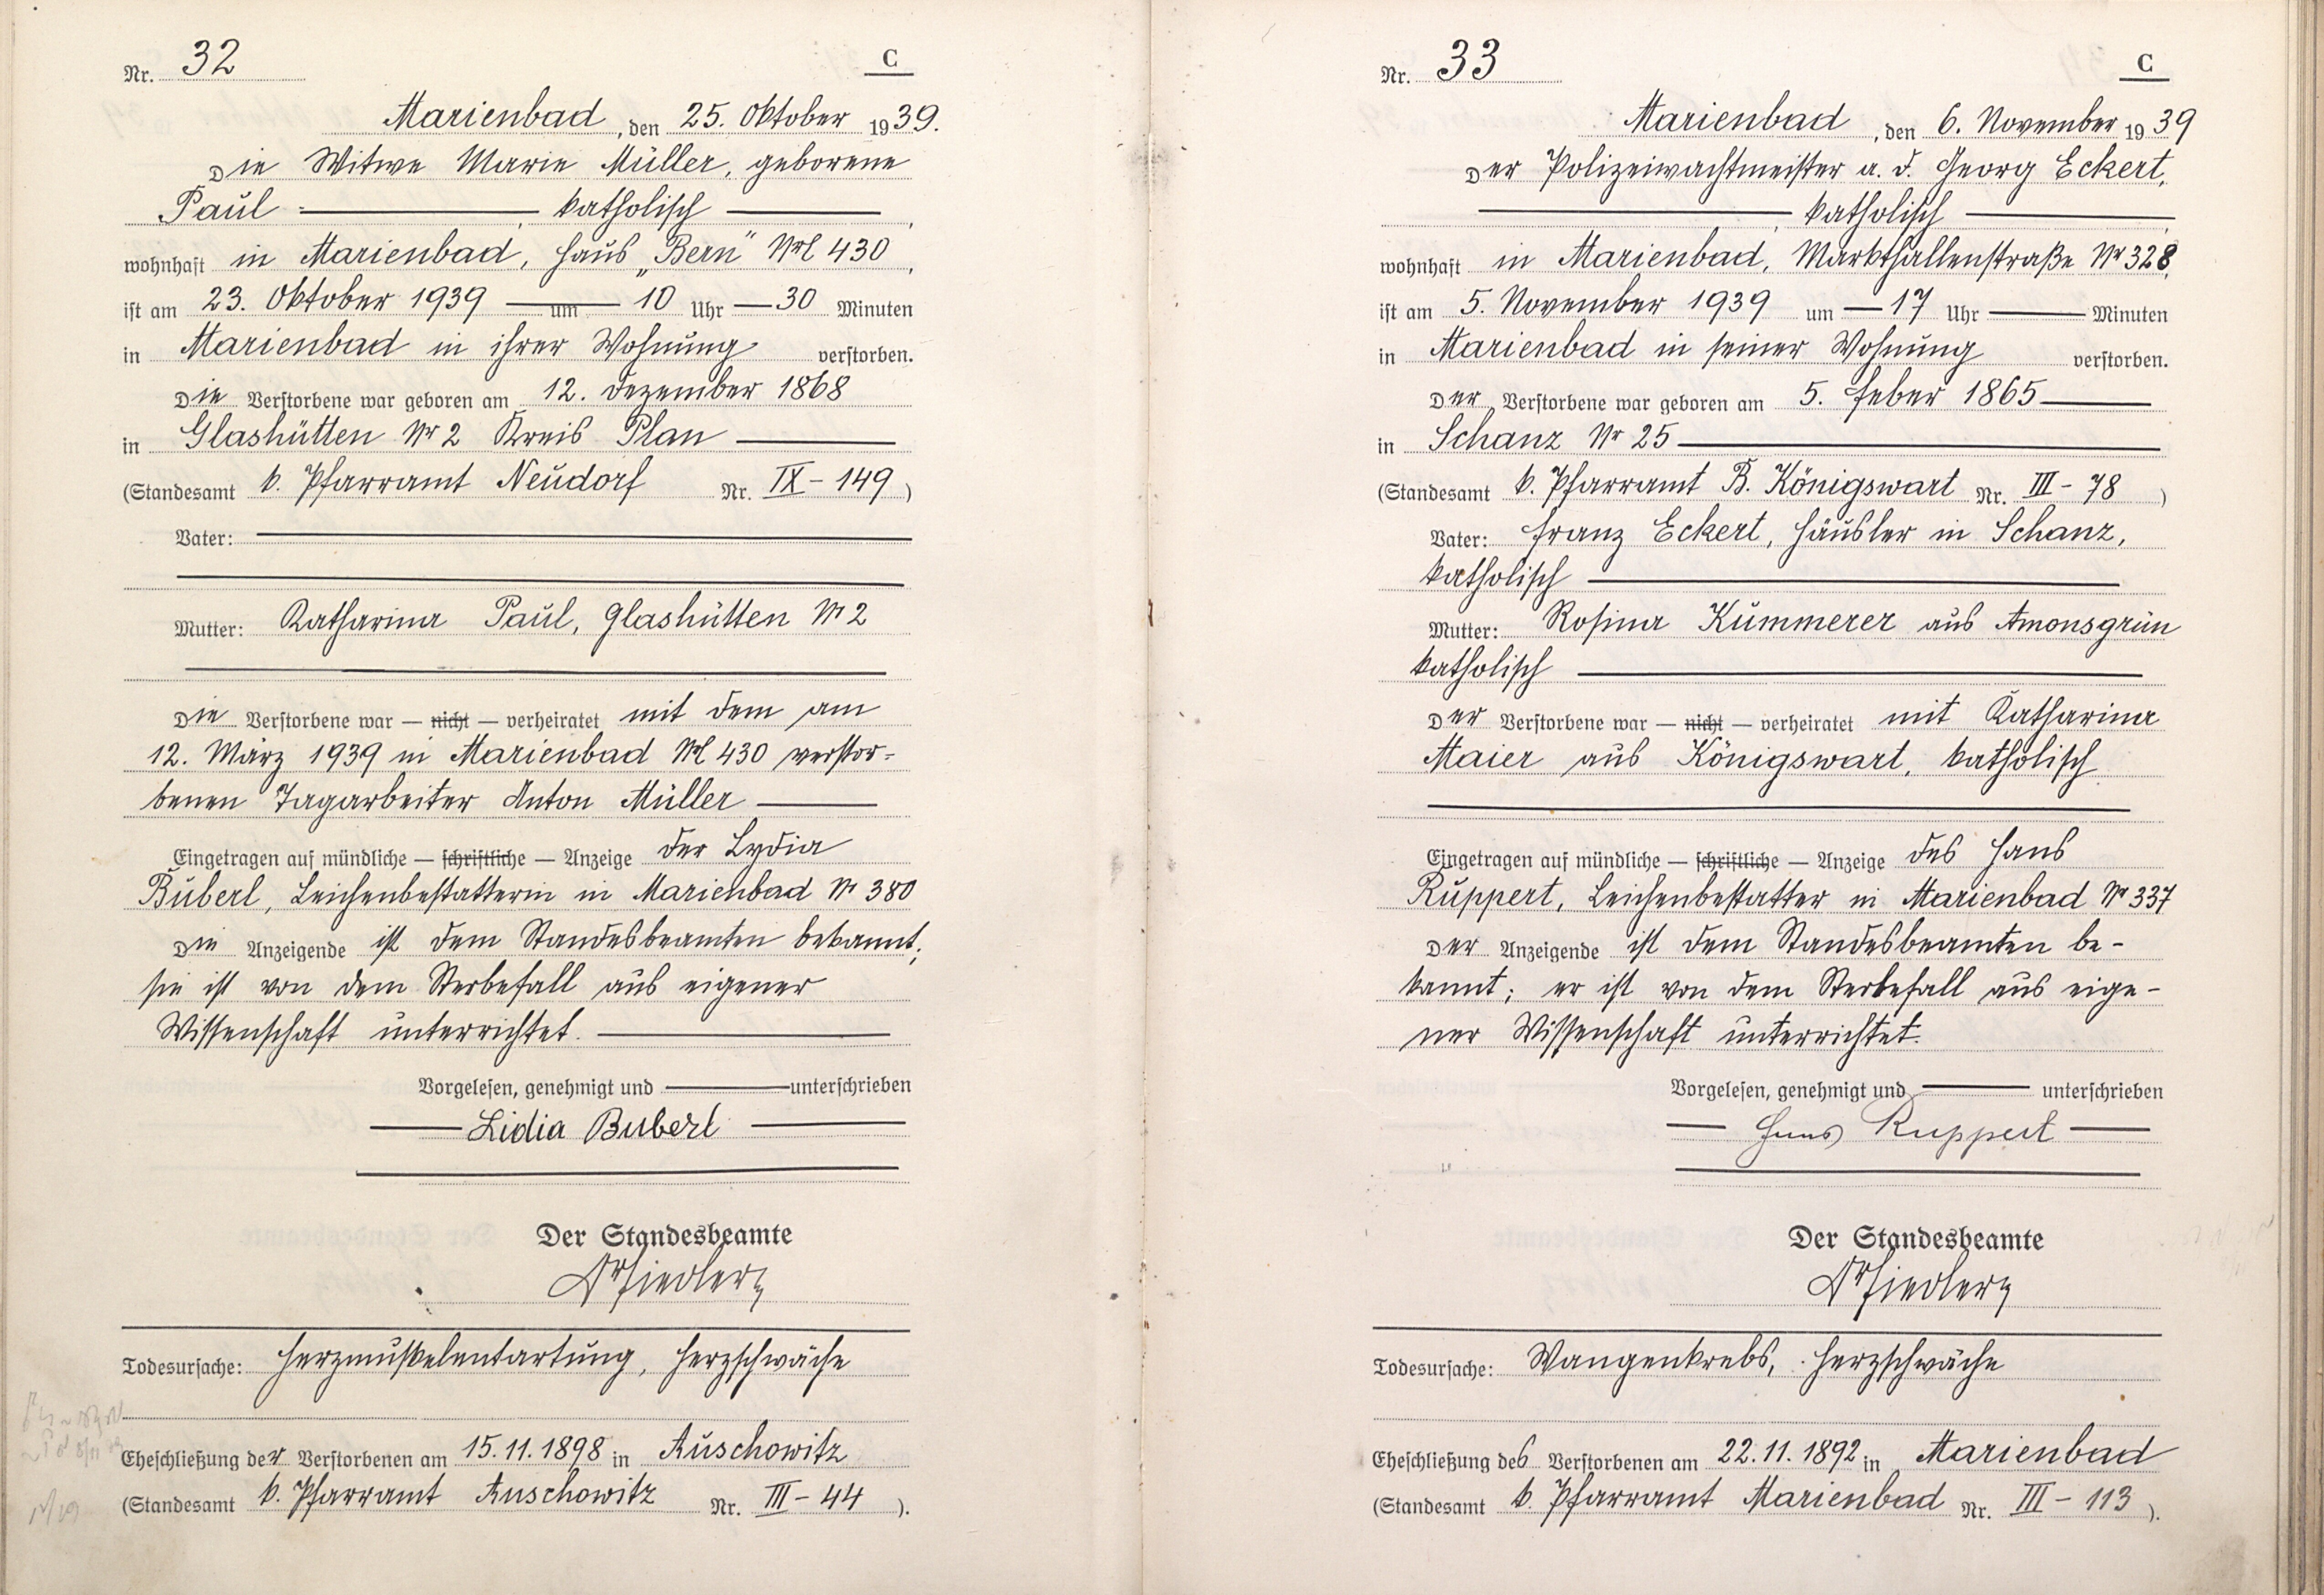 Nr. 32
C
Marienbad, den 25. Oktober 1939.
Die Witwe Marie Müller, geborene
Paul katholisch,
wohnhaft in Marienbad, Haus „Bern" Nr 430,
ist am 23. Oktober 1939 um 10 Uhr 30 Minuten
in Marienbad in ihrer Wohnung verstorben.
Die Verstorbene war geboren am 12. Dezember 1868
in Glashütten Nr 2 Kreis Plan
(Standesamt k. Pfarramt Neudorf Nr. IX - 149)
Vater:
Mutter: Katharina Paul, Glashütten Nr 2
Die Verstorbene war — nicht — verheiratet mit dem am
12. März 1939 in Marienbad Nr 430 verstor-
benen Tagarbeiter Anton Müller
Eingetragen auf mündliche — schriftliche — Anzeige der Lydia
Buberl, Leichenbestatterin in Marienbad Nr 380
Die Anzeigende ist dem Standesbeamten bekannt;
sie ist von dem Sterbefall aus eigener
Wissenschaft unterrichtet.
Vorgelesen, genehmigt und unterschrieben
Lidia Buberl
Der Standesbeamte
Dr Fiedler
Todesursache: Herzmuskelentartung, Herzschwäche
Eheschließung der Verstorbenen am 15.11.1898 in Auschowitz
(Standesamt k. Pfarramt Auschowitz Nr. III - 44).
Nr. 33
C
Marienbad, den 6. November 1939
Der Polizeiwachtmeister a. D. Georg Eckert,
katholisch,
wohnhaft in Marienbad, Markthallenstraße Nr 328,
ist am 5. November 1939 um 17 Uhr Minuten
in Marienbad in seiner Wohnung verstorben.
Der Verstorbene war geboren am 5. Feber 1865
in Schanz Nr 25
(Standesamt k. Pfarramt B. Königswart Nr. III - 78)
Vater: Franz Eckert, Häusler in Schanz,
katholisch
Mutter: Rosina Kummerer aus Amonsgrün
katholisch
Der Verstorbene war — nicht — verheiratet mit Katharina
Maier aus Königswart, katholisch
Eingetragen auf mündliche — schriftliche — Anzeige des Hans
Ruppert, Leichenbestatter in Marienbad Nr 337
Der Anzeigende ist dem Standesbeamten be-
kannt; er ist von dem Sterbefall aus eige-
ner Wissenschaft unterrichtet.
Vorgelesen, genehmigt und unterschrieben
Hans Ruppert
Der Standesbeamte
Dr Fiedler
Todesursache: Wangenkrebs, Herzschwäche
Eheschließung des Verstorbenen am 22.11.1892 in Marienbad
(Standesamt k. Pfarramt Marienbad Nr. III - 113).